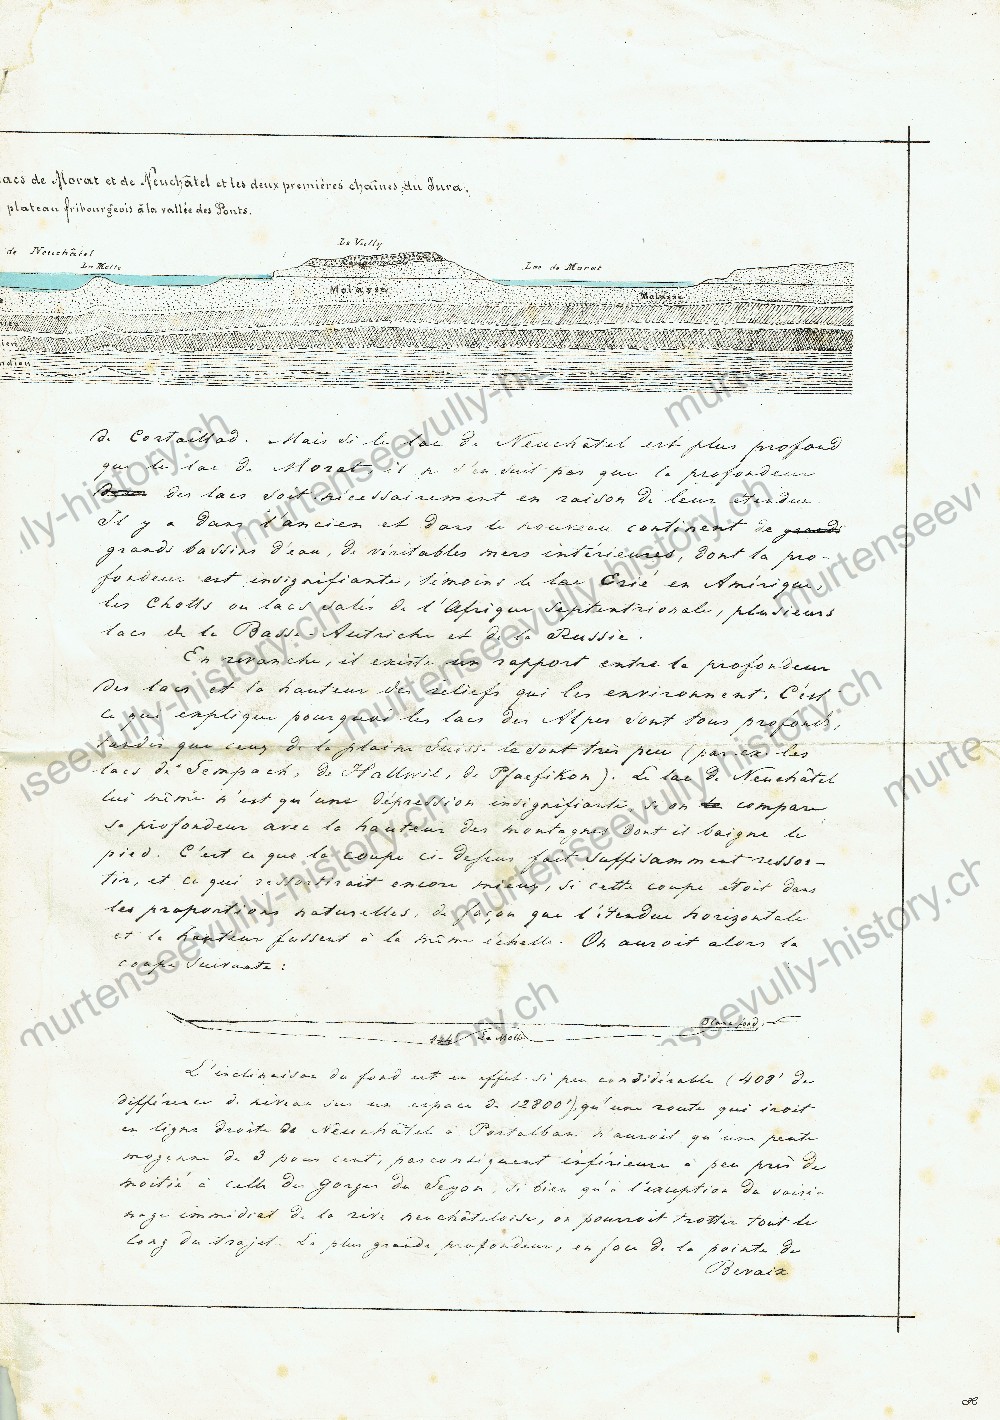 lacs de Morat et de Neuchâtel et les deux premières chaînes du Jura,
plateau fribourgeois à la vallée des Ponts.
Le Vully
de Neuchâtel
La Motte
Lac de Morat
Molasse
Molasse
de Cortaillod. Mais si le lac de Neuchâtel est plus profond
que le lac de Morat, il ne s'en suit pas que la profondeur
des lacs soit nécessairement en raison de leur étendue
Il y a dans l'ancien et dans le nouveau continent de grands
grands bassins d'eau, de véritables mers intérieures, dont la pro-
fondeur est insignifiante, témoins le lac Erié en Amérique,
les Chotts ou lacs salés de l'Afrique septentrionale, plusieurs
lacs de la Basse-Autriche et de la Russie.
En revanche, il existe un rapport entre la profondeur
des lacs et la hauteur des reliefs qui les environnent. C'est
ce qui explique pourquoi les lacs des Alpes sont tous profonds,
tandis que ceux de la plaine Suisse le sont très peu (par ex. les
lacs de Sempach, de Hallwil, de Pfaefikon). Le lac de Neuchâtel
lui même n'est qu'une dépression insignifiante, si on le compare
sa profondeur avec la hauteur des montagnes dont il baigne le
pied. C'est ce que la coupe ci-dessus fait suffisamment ressor-
tir, et ce qui ressortirait encore mieux, si cette coupe était dans
les proportions naturelles, de façon que l'étendue horizontale
et la hauteur fussent à la même échelle. On auroit alors la
coupe suivante:
La Motte
L'inclinaison du fond est en effet si peu considérable (408' de
différence de niveau sur un espace de 12800'), qu'une route qui iroit
en ligne droite de Neuchâtel à Portalban n'auroit qu'une pente
moyenne de 3 pour cent, par conséquent inférieure à peu près de
moitié à celle des Gorges du Seyon, si bien qu'à l'exception du voisi-
nage immédiat de la rive neuchâteloise, on pourroit trotter tout le
long du trajet. La plus grande profondeur, en face de la pointe de
Bevaix
murtenseevully-history.ch
murtenseevully-history.ch
murtenseevully-history.ch
murtenseevully-history.ch
murtenseevully-history.ch